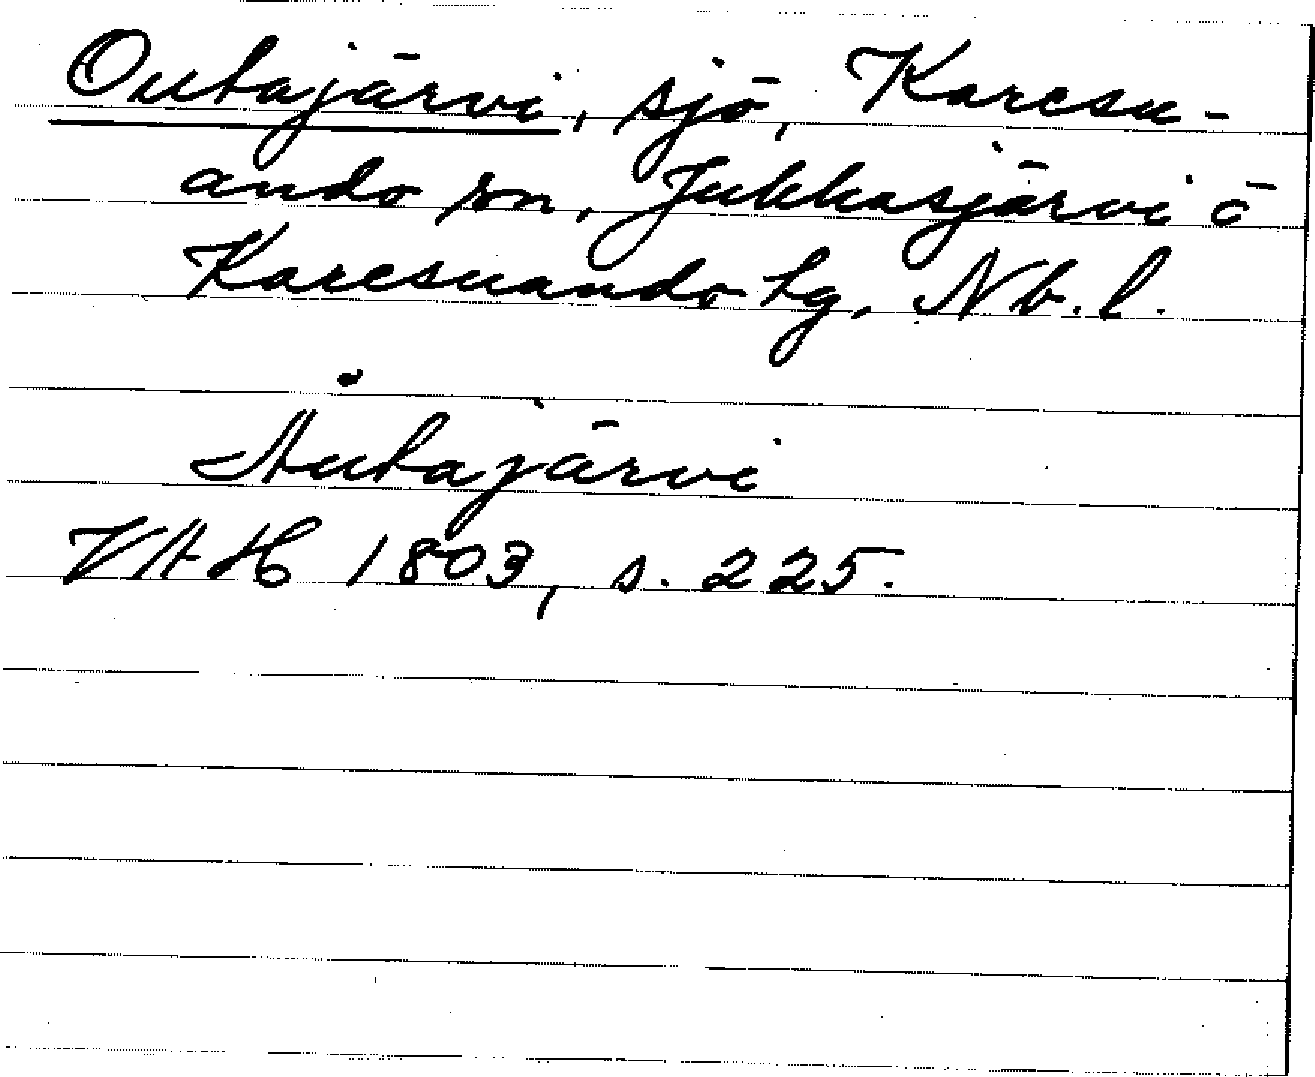 Outajärvi, sjö, Karesu-
ando sn, Jukkasjärvi o
Karesuando lg, Nb. l.
Åutajärvi
VAH 1803, s. 225.